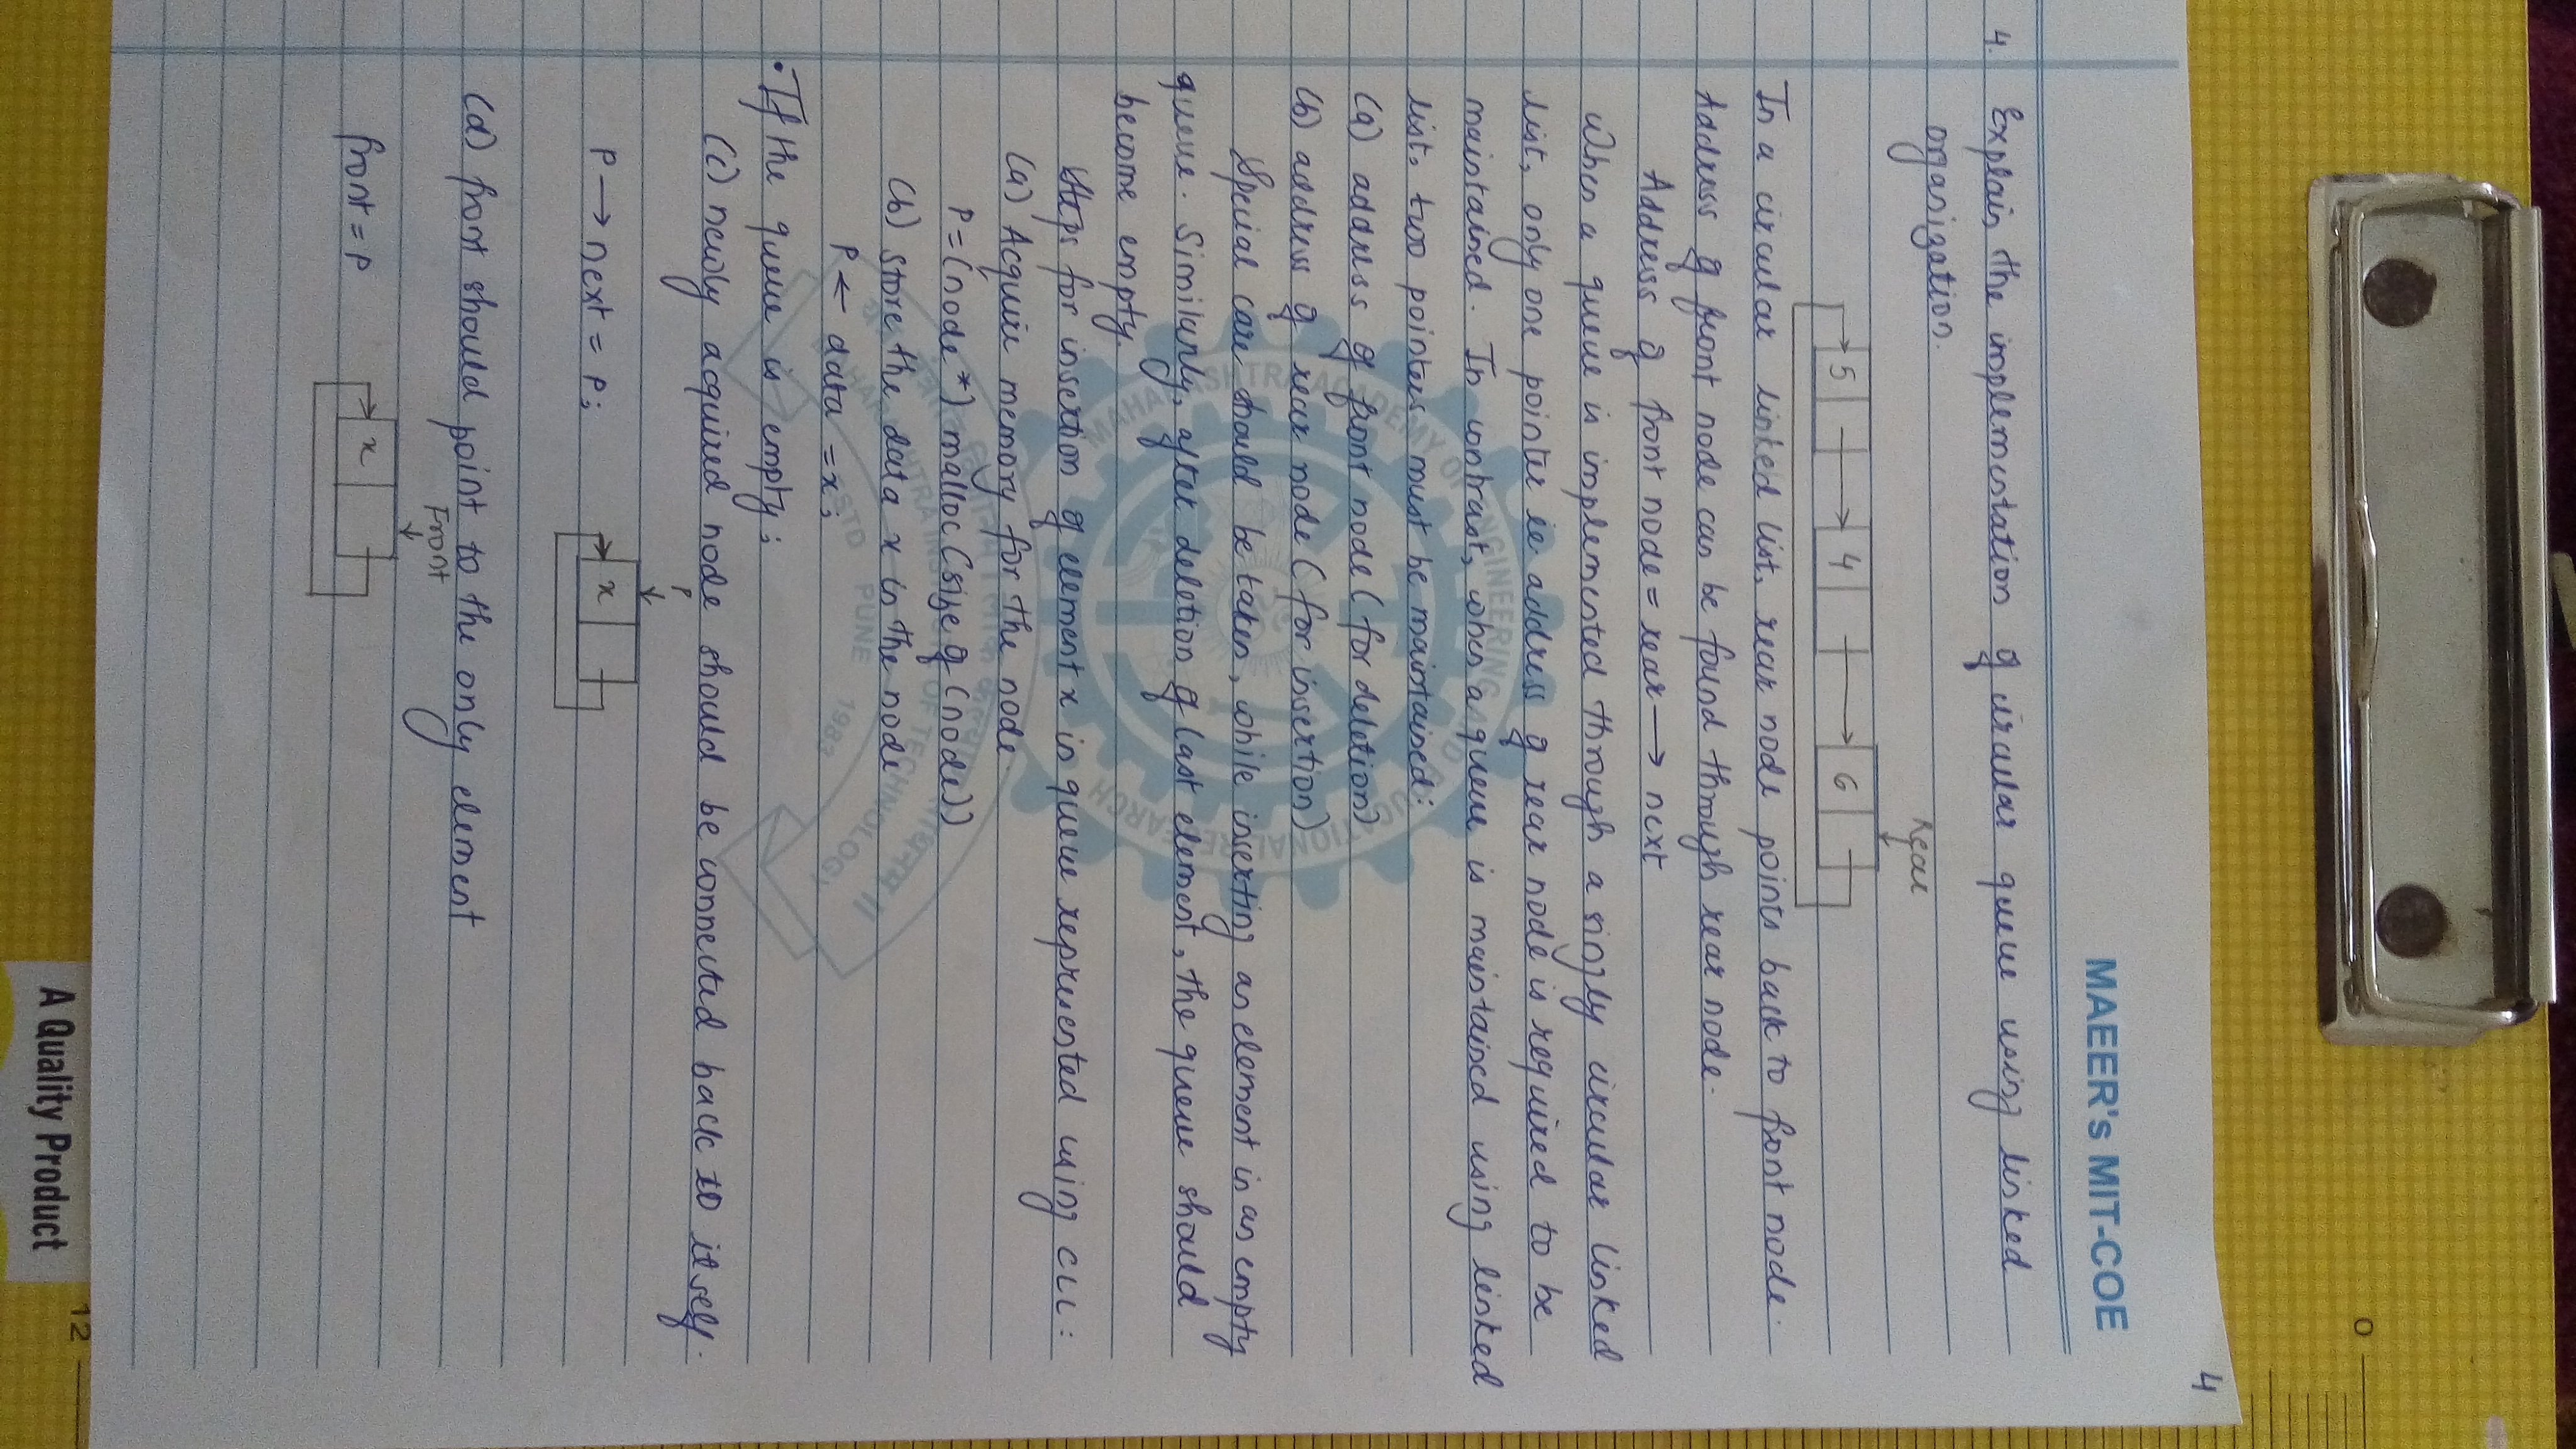 O
4
MAEER's MIT-COE
4. Explain the implementation of circular queue using linked
organization.
Rear
5 4 6
In a circular linked list, rear node points back to front node.
Address of front node can be found through rear node.
Address of front node = rear → next
When a queue is implemented through a singly circular linked
list, only one pointer ie. address of rear node is required to be
maintained. In contrast, when a queue is maintained using linked
list, two pointers must be maintained:
(a) address of front node (for deletion)
(b) address of rear node (for insertion)
Special care should be taken, while inserting an element in an empty
queue. Similarly, after deletion of last element, the queue should
become empty.
Steps for insertion of element x in queue represented using CLL:
(a) Acquire memory for the node.
P = (node *) malloc (size of (node))
(b) store the data x in the node
P ← data = x;
• If the queue is empty;
(c) newly acquired node should be connected back to itself.
P
P → next = P; x
(d) front should point to the only element
Front
front = P x
MAHARASHTRA ACADEMY OF ENGINEERING AND EDUCATIONAL RESEARCH
MAHARASHTRA INSTITUTE OF TECHNOLOGY
ESTD PUNE 1983
12
A Quality Product